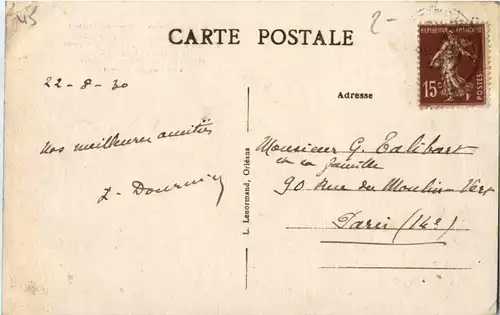 45
2-
CARTE POSTALE
REPUBLIQUE FRANÇAISE
15c
POSTES
22-8-30
Adresse
Nos meilleures amitiés
L. Lenormand, Orléans
Monsieur G. Talibart
et sa famille
90 Rue du Moulin-Vert
Paris (14e)